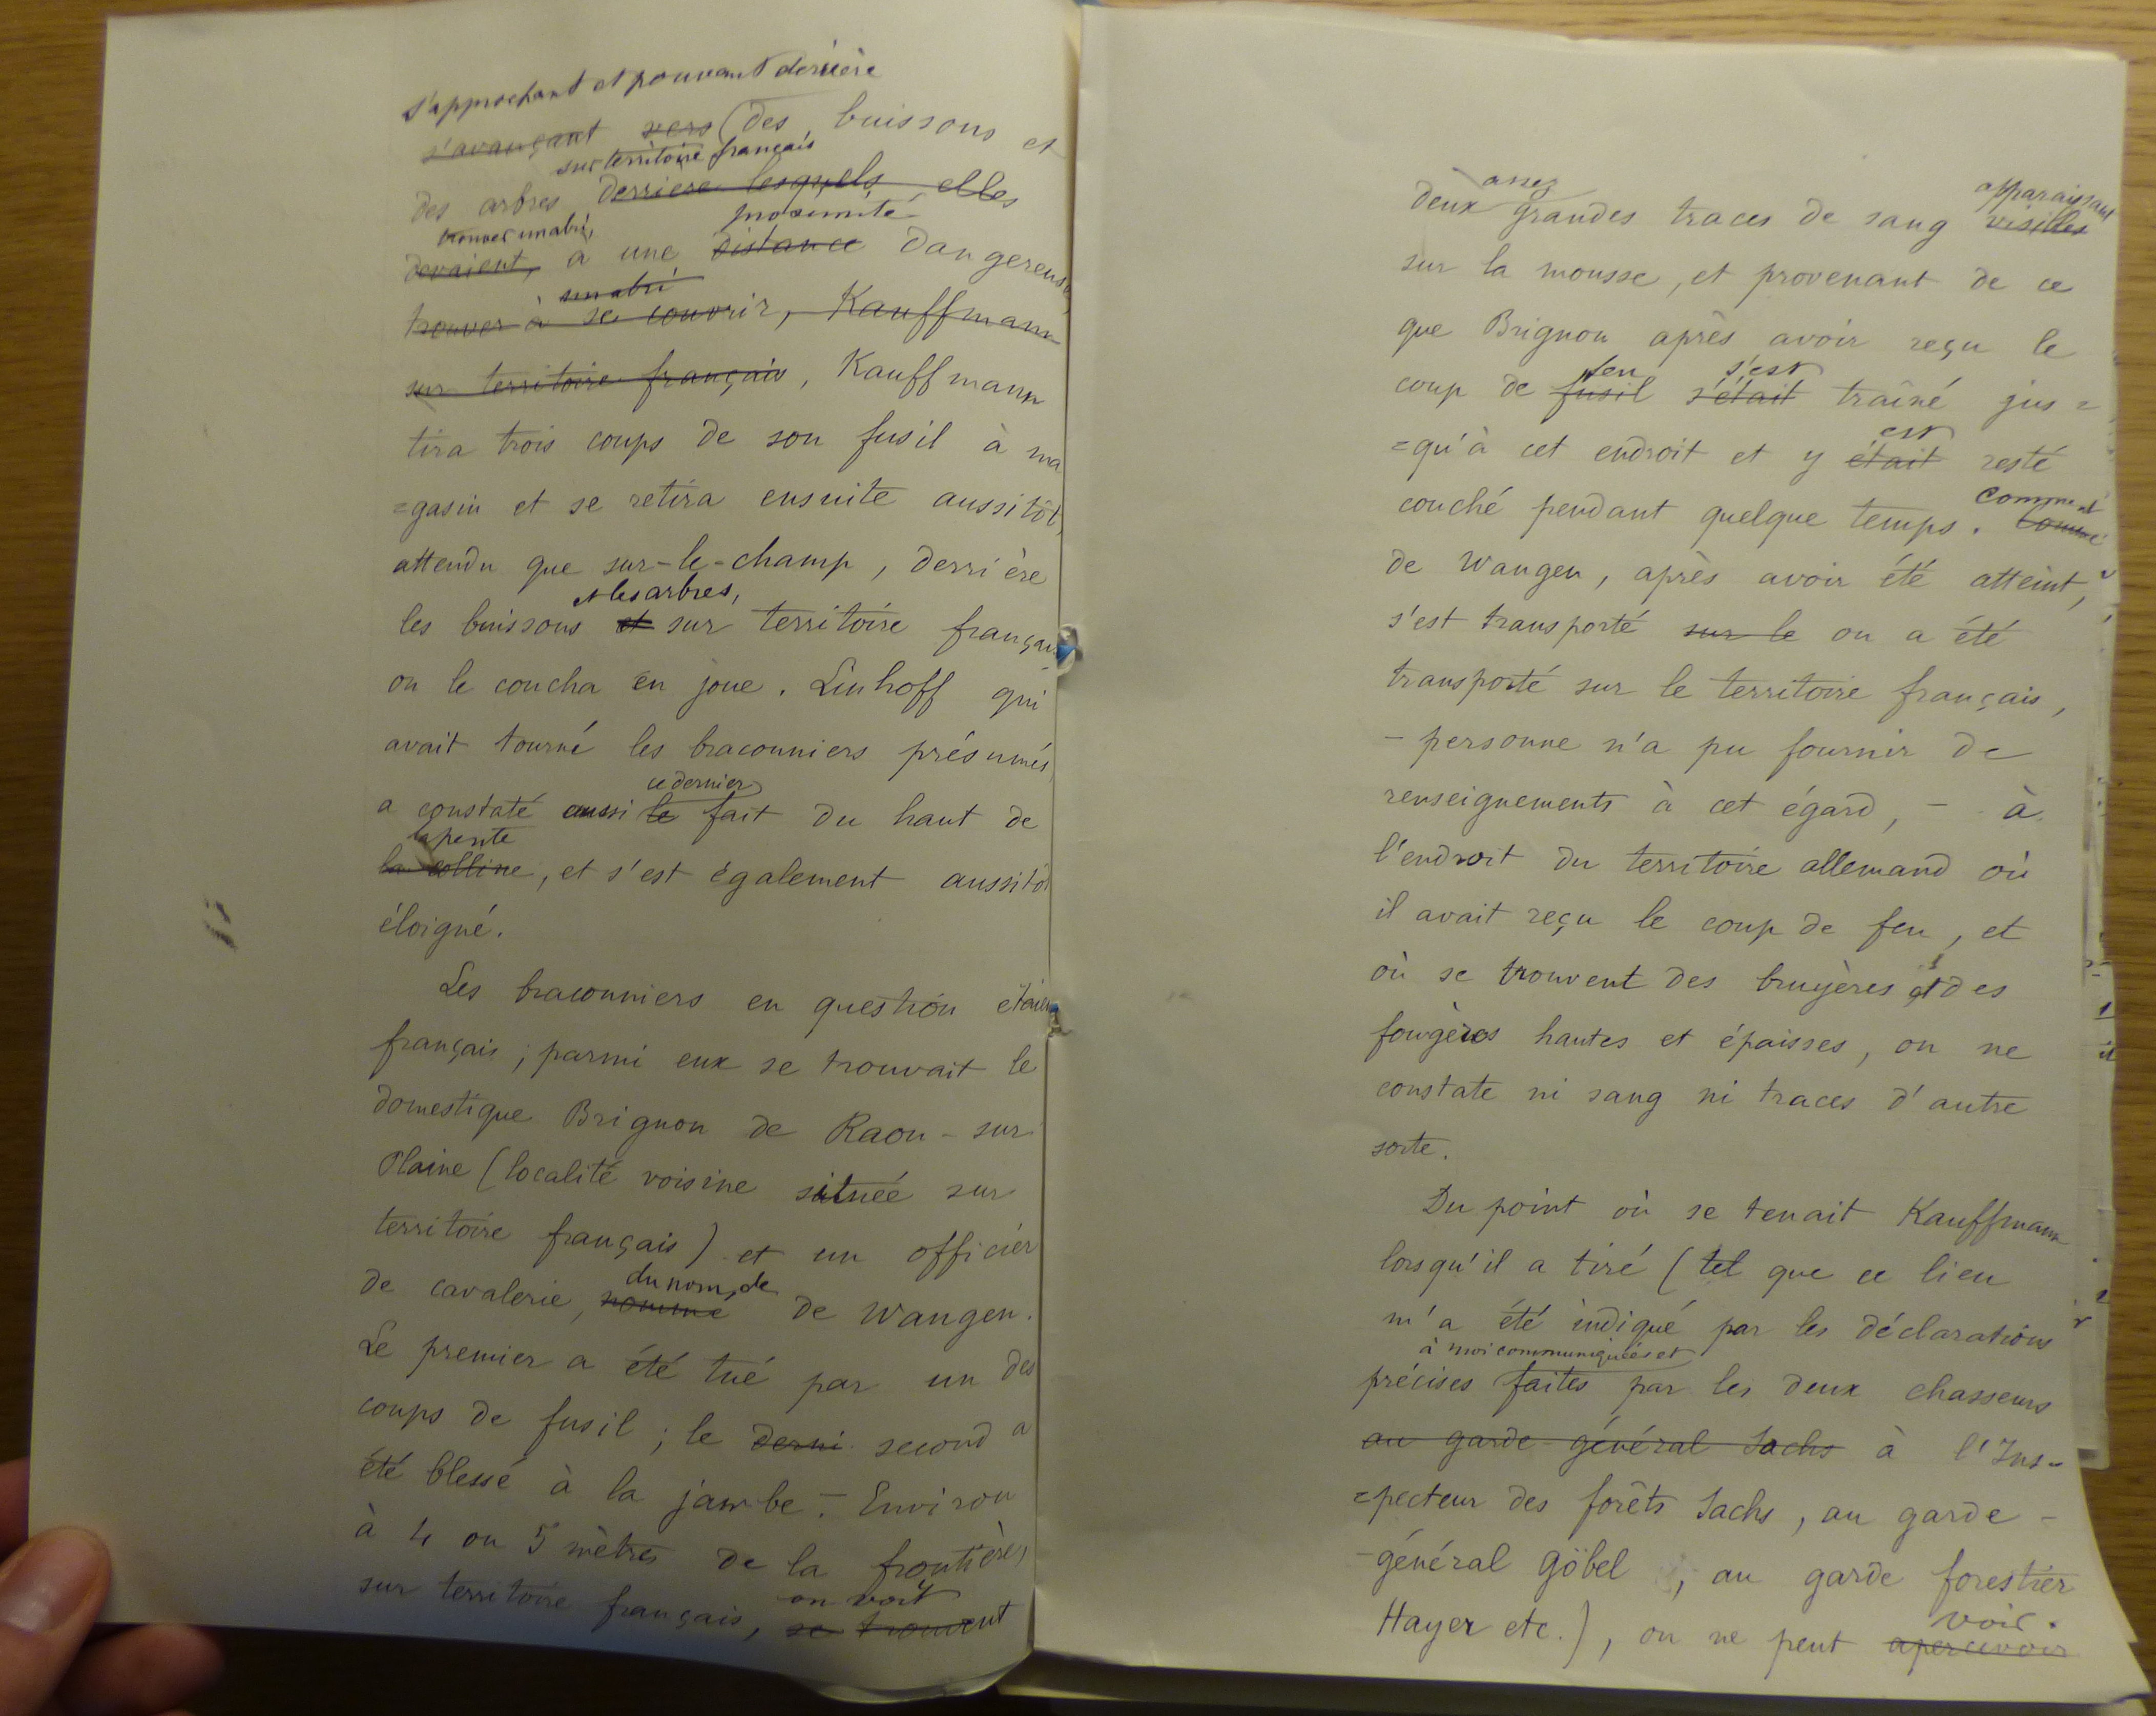 s'approchant et pouvant derrière
s'avançant vers (des buissons et
sur territoire français
des arbres derriere lesquels elles
trouver un abri, proximité
devaient, à une distance dangereuse,
un abri
trouver à se couvrir, Kauffmann
sur territoire français, Kauffmann
tira trois coups de son fusil à ma
=gasin et se retira ensuite aussitôt,
attendu que sur-le-champ, derrière
et les arbres,
les buissons et sur territoire français
on le coucha en joue. Linhoff qui
avait tourné les braconniers présumés
ce dernier
a constaté aussi le fait du haut de
la pente
la colline, et s'est également aussitôt
éloigné.
Les braconniers en question étaient
français ; parmi eux se trouvait le
domestique Brignon de Raon-sur
Plaine (localité voisine située sur
territoire français) et un officier
du nom de
de cavalerie, nommé de Wangen.
Le premier a été tué par un des
coups de fusil ; le derni second a
été blessé à la jambe. – Environ
à 4 ou 5 mètres de la frontière,
on voit
sur territoire français, se trouvent
assez apparaissant
deux grandes traces de sang visibles
sur la mousse, et provenant de ce
que Brignon après avoir reçu le
feu s'est
coup de fusil s'était traîné jus=
est
=qu'à cet endroit et y était resté
Comment
couché pendant quelque temps. Comme
de Wangen, après avoir été atteint,
s'est transporté sur le ou a été
transporté sur le territoire français,
– personne n'a pu fournir de
renseignements à cet égard, – à
l'endroit du territoire allemand où
il avait reçu le coup de feu, et
où se trouvent des bruyères et des
fougères hautes et épaisses, on ne
constate ni sang ni traces d'autre
sorte.
Du point où se tenait Kauffmann
lorsqu'il a tiré (tel que ce lieu
m'a été indiqué par les déclarations
à moi communiquées et
précises faites par les deux chasseurs
au garde-général Sachs à l'Ins-
=pecteur des forêts Sachs, au garde-
-général Göbel, au garde forestier
voir.
Hayer etc.), on ne peut apercevoir